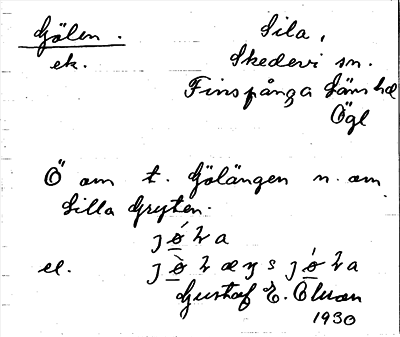 Gölen.
ek.
Sila,
Skedevi sn.
Finspånga läns hd
Ögl
Ö om t. Gölängen n. om
Lilla Gryten.
el.
Gustaf E. Olsson
1930